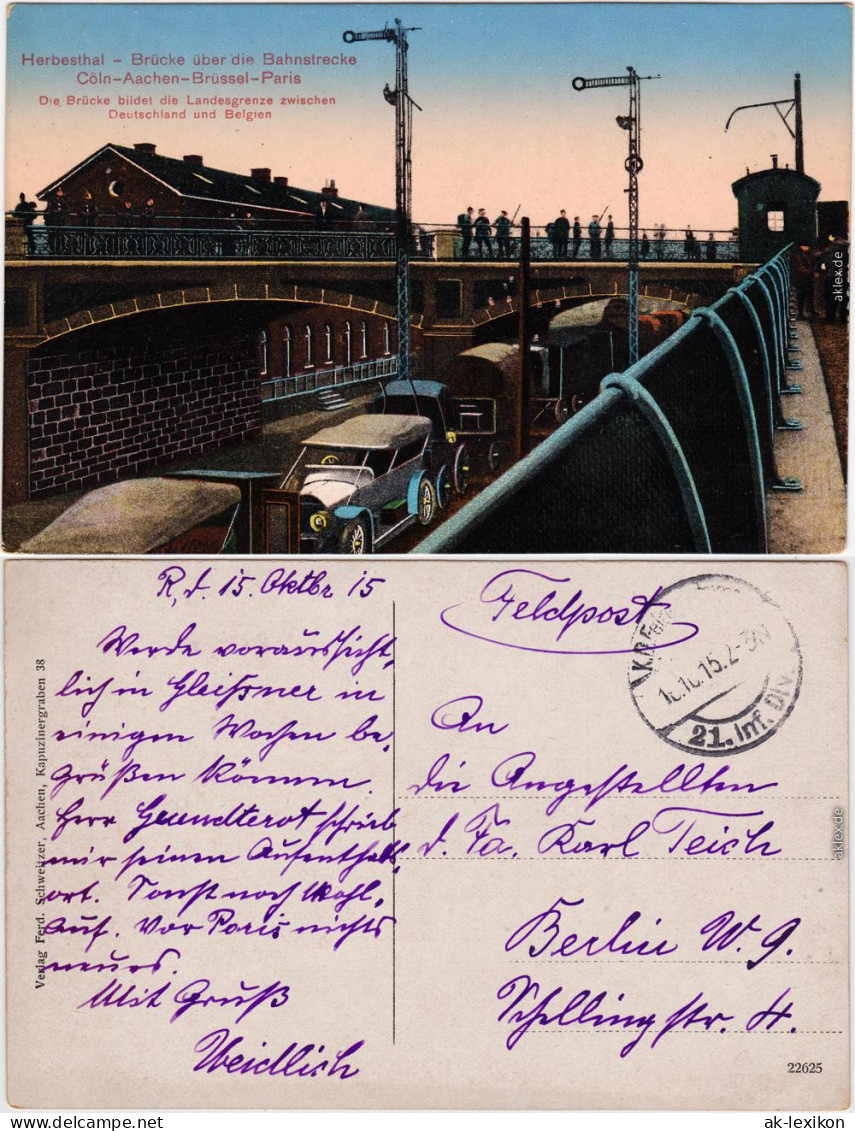 Herbesthal – Brücke über die Bahnstrecke
Cöln–Aachen–Brüssel–Paris
Die Brücke bildet die Landesgrenze zwischen
Deutschland und Belgien
aklex.de
R, d. 15. Oktbr 15
Werde voraussicht,
lich in Gleissner in
einigen Wochen be,
grüßen können.
Herr schrieb
mir seinen Aufenthalts,
ort. Sonst noch Wohl,
auf. Vor Paris nichts
neues.
Mit Gruß
Weidlich
Verlag Ferd. Schweitzer, Aachen, Kapuzinergraben 38
Feldpost
16.10.15. 2-3N
21. Inf. Div.
An
die Angestellten
d. Fa. Karl Teich
Berlin W. 9.
Schellingstr. 4.
22625
aklex.de
www.ansichtskarten-lexikon.de
ak-lexikon